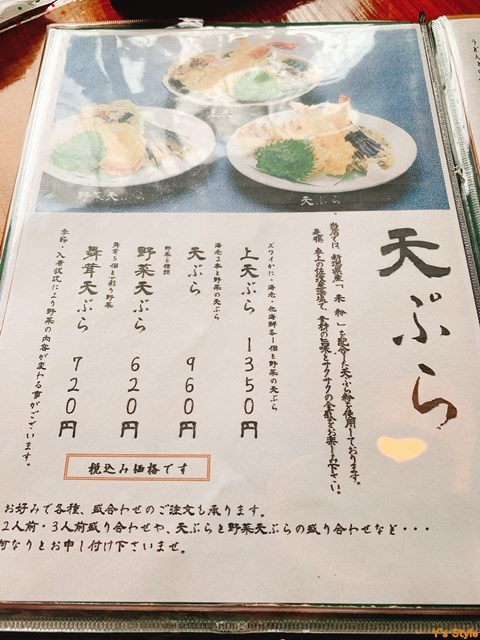 天ぷら
当店では、新潟県産「米粉」を配合した天ぷら粉を使用しております。
是非、卓上の佐渡産藻塩で、食材の旨味とサクサクの食感をお楽しみ下さい。
ズワイかに・海老・他海鮮各1個と野菜の天ぷら
上天ぷら 1350円
海老2本と野菜の天ぷら
天ぷら 960円
野菜6種類
野菜天ぷら 620円
舞茸5個と彩り野菜
舞茸天ぷら 720円
季節・入荷状況により野菜の内容が変わる事がございます。
税込み価格です
お好みで各種、盛合わせのご注文も承ります。
2人前・3人前盛り合わせや、天ぷらと野菜天ぷらの盛り合わせなど・・・
何なりとお申し付け下さいませ。
野菜天ぷら
天ぷら
Y's Style